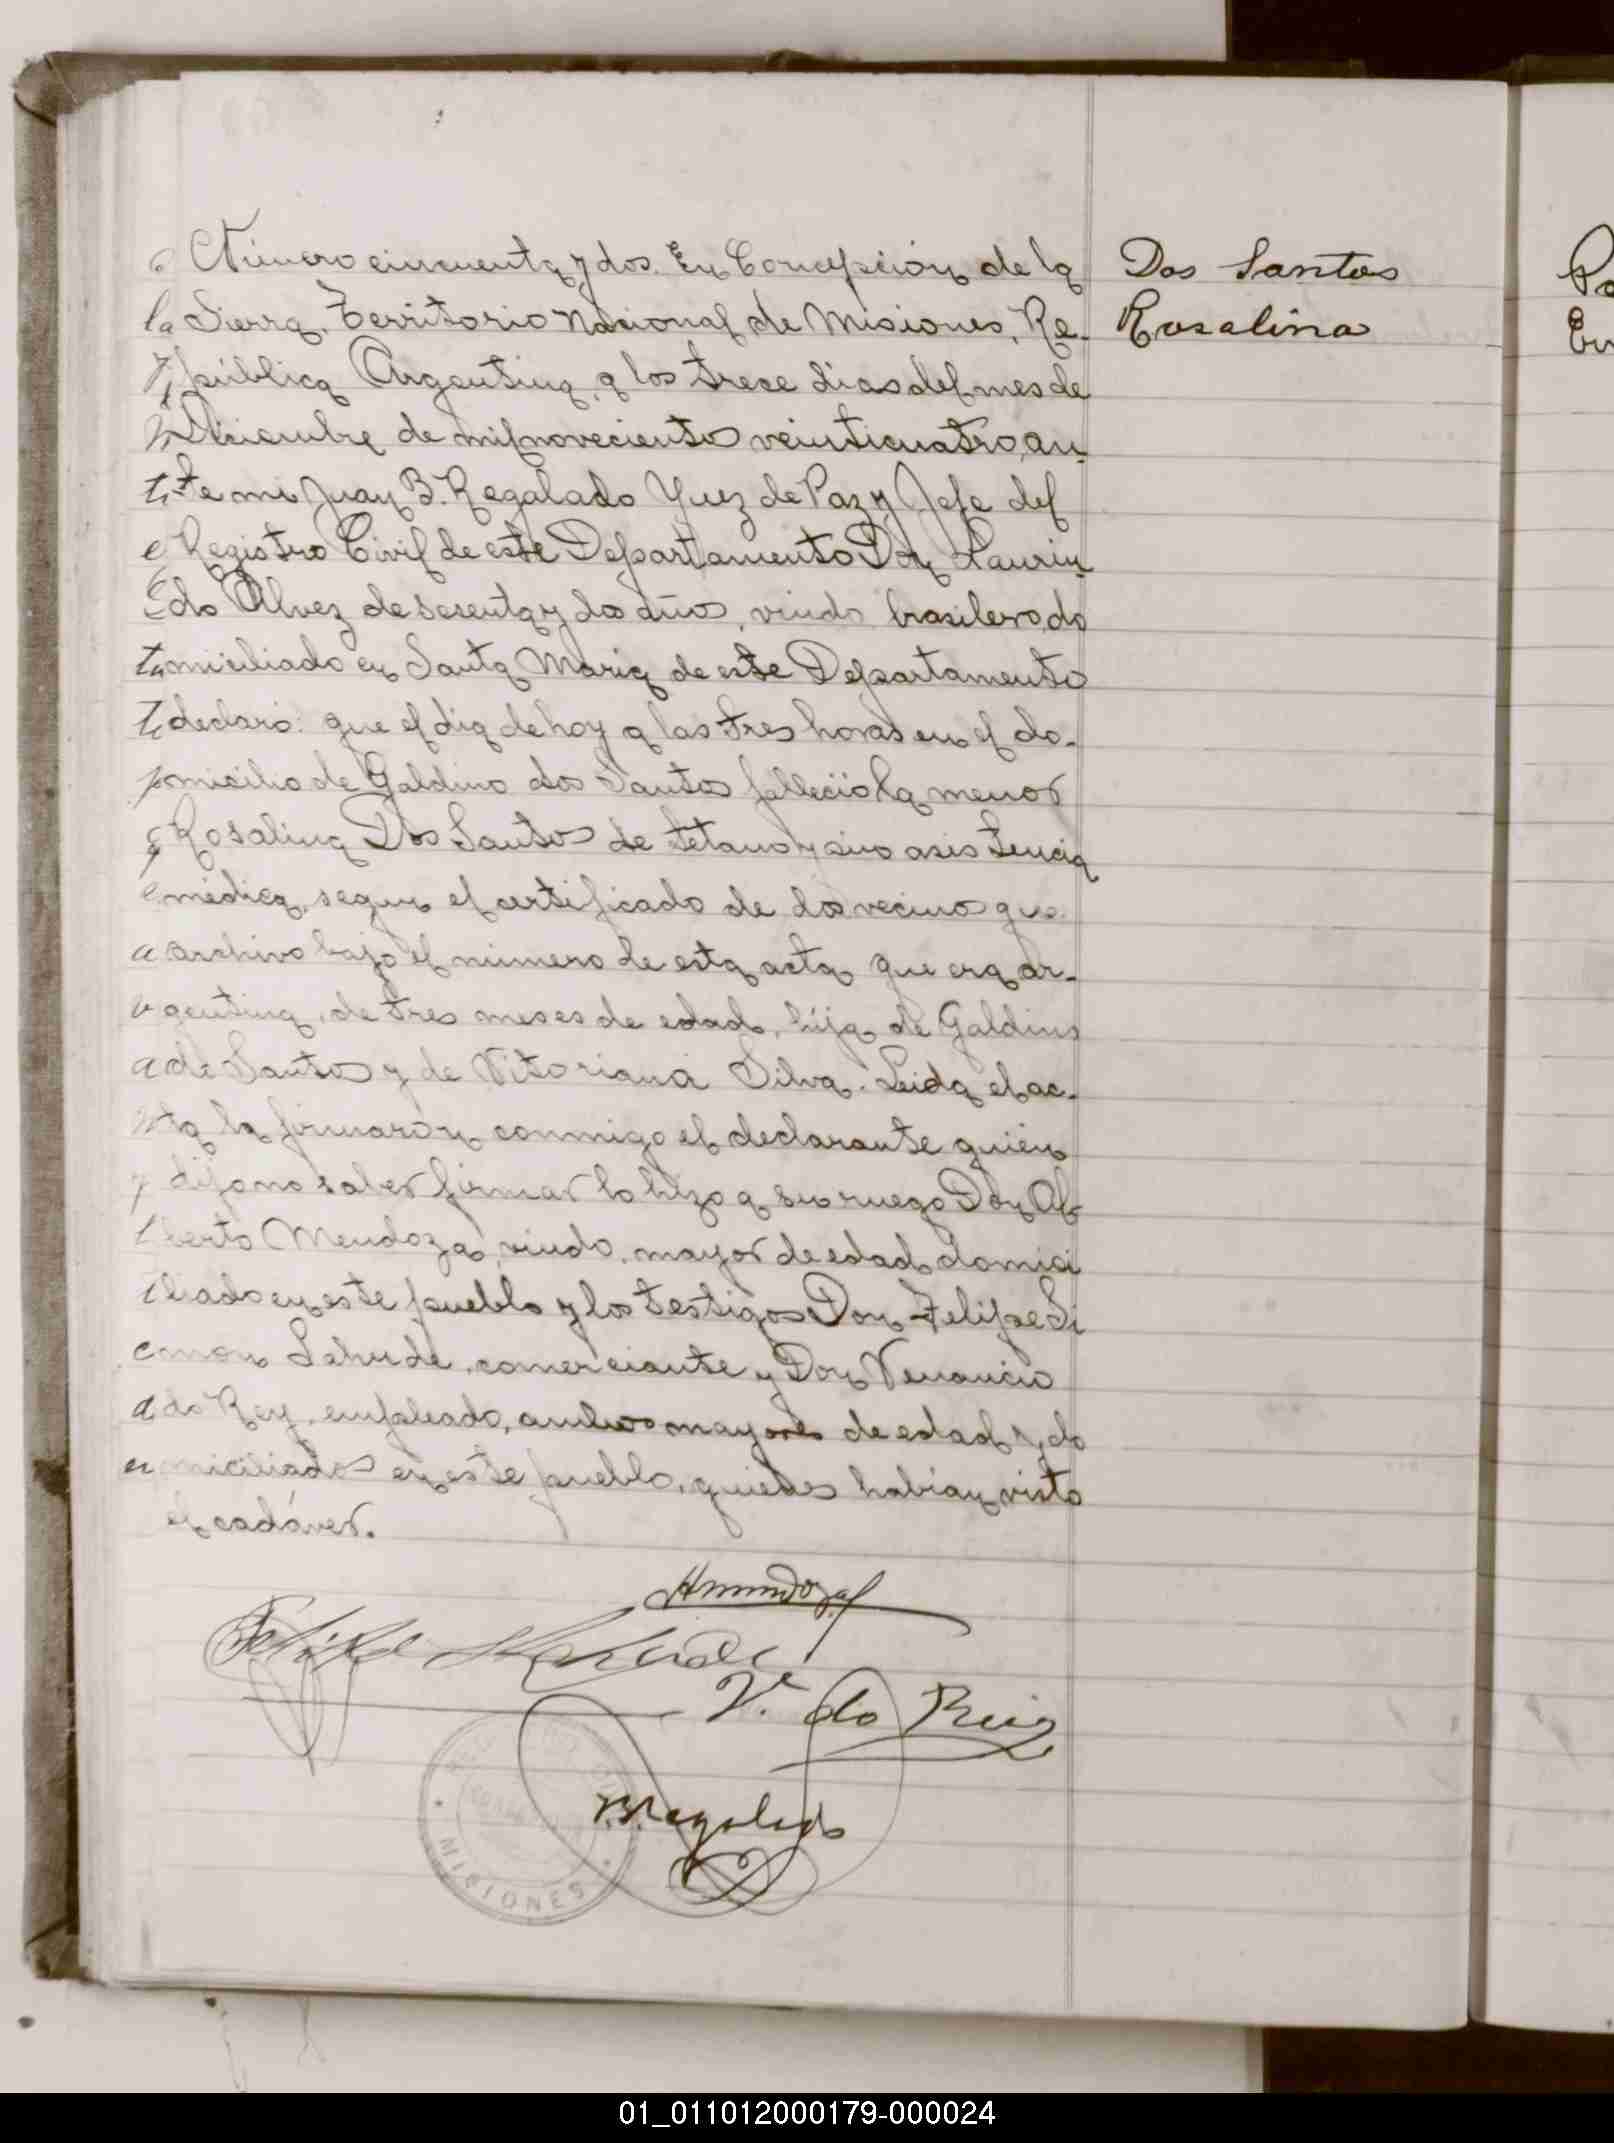 Número cincuenta y dos. En Concepción de la
la Sierra, Territorio Nacional de Misiones, Re-
pública Argentina, a los trece dias del mes de
Diciembre de mil novecientos veinticuatro, an-
te mi Juan B. Regalado Yuez de Paz y Jefe del
Registro Civil de este Departamento Don Laurin-
do Alvez de sesenta y dos años, viudo, brasilero, do
miciliado en Santa Maria de este Departamento
declaró: que el dia de hoy a las tres horas en el do-
micilio de Galdino dos Santos falleció la menor
Rosalina Dos Santos de tetano y sin asistencia
médica, segun el certificado de dos vecinos que
archivo bajo el número de esta acta, que era ar-
gentina, de tres meses de edad, hija de Galdino
de Santos y de Vitoriana Silva. Leida el ac-
ta la firmaron conmigo el declarante quién
dijo no saber firmar lo hizo a su ruego Don Al-
berto Mendoza, viudo, mayor de edad, domici
liado en este pueblo y los testigos Don Felipe Si
mon Lahude, comerciante y Don Venancio
do Rey, empleado, ambos mayores de edad y do
miciliados en este pueblo, quienes habian visto
el cadáver.
Dos Santos
Rosalina
AMendoza
Felipe S Lahude
V. do Rey
Regalado
MISIONES
01_011012000179-000024